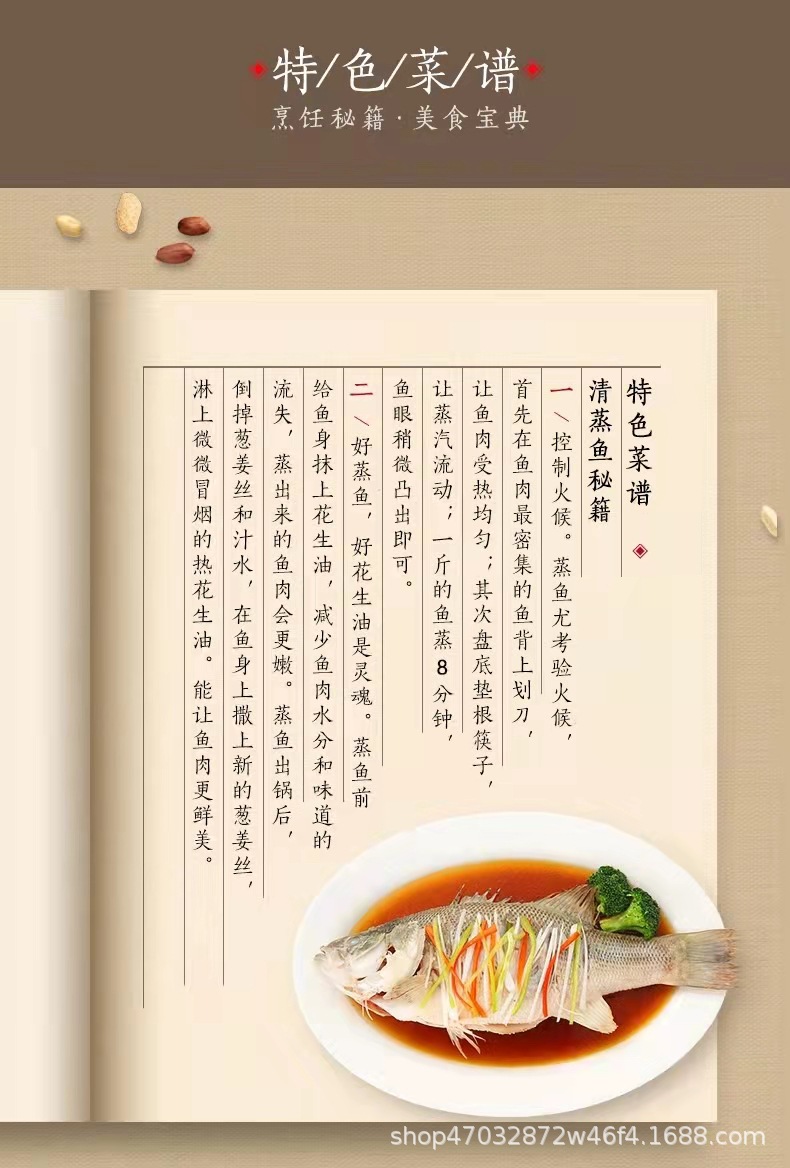 特/色/菜/谱
烹饪秘籍·美食宝典
特色菜谱
清蒸鱼秘籍
一\控制火候。蒸鱼尤考验火候，
首先在鱼肉最密集的鱼背上划刀，
让鱼肉受热均匀；其次盘底垫根筷子，
让蒸汽流动；一斤的鱼蒸8分钟，
鱼眼稍微凸出即可。
二\好蒸鱼，好花生油是灵魂。蒸鱼前
给鱼身抹上花生油，减少鱼肉水分和味道的
流失，蒸出来的鱼肉会更嫩。蒸鱼出锅后，
倒掉葱姜丝和汁水，在鱼身上撒上新的葱姜丝，
淋上微微冒烟的热花生油。能让鱼肉更鲜美。
shop47032872w46f4.1688.com